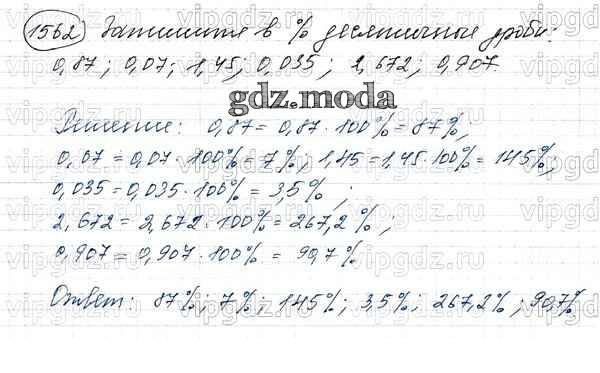 1562 Запишите в % десятичные дроби:
0,87; 0,07; 1,45; 0,035; 2,672; 0,907.
gdz.moda
Решение: 0,87 = 0,87·100% = 87%;
0,07 = 0,07·100% = 7%; 1,45 = 1,45·100% = 145%;
0,035 = 0,035·100% = 3,5%;
2,672 = 2,672·100% = 267,2%;
0,907 = 0,907·100% = 90,7%
Ответ: 87%; 7%; 145%; 3,5%; 267,2%; 90,7%
vipgdz.ru